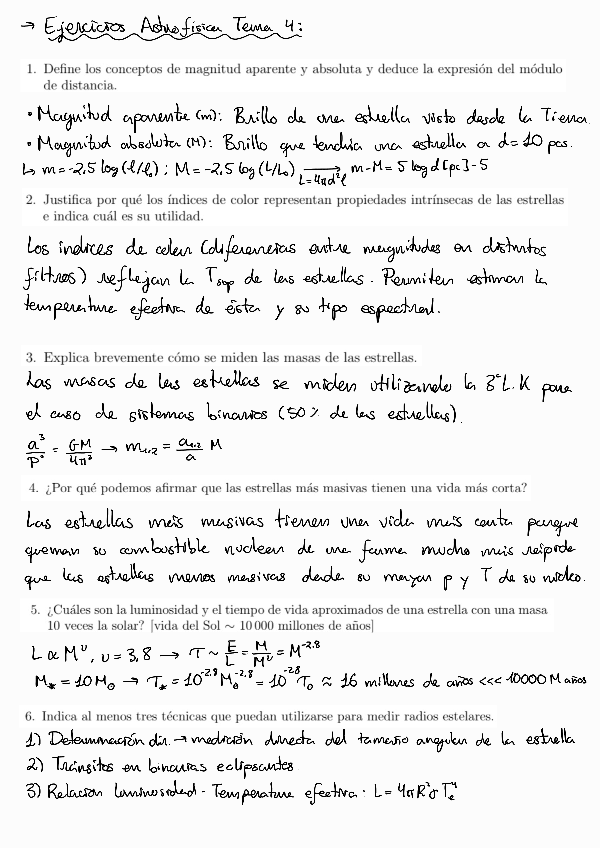 → Ejercicios Astrofísica Tema 4:
1. Define los conceptos de magnitud aparente y absoluta y deduce la expresión del módulo
de distancia.
• Magnitud aparente (m): Brillo de una estrella visto desde la Tierra.
• Magnitud absoluta (M): Brillo que tendría una estrella a d=10 pcs.
↳ m=-2,5 log(l/l₀) ; M=-2,5 log(L/L₀) ⟶ L=4πd²l m-M=5 log d [pc]-5
2. Justifica por qué los índices de color representan propiedades intrínsecas de las estrellas
e indica cuál es su utilidad.
Los índices de color (diferencias entre magnitudes en distintos
filtros) reflejan la Tsup de las estrellas. Permiten estimar la
temperatura efectiva de ésta y su tipo espectral.
3. Explica brevemente cómo se miden las masas de las estrellas.
Las masas de las estrellas se miden utilizando la 3ª L.K para
el caso de sistemas binarios (50% de las estrellas).
a³/P² = GM/4π² → m₁,₂ = a₁,₂/a M
4. ¿Por qué podemos afirmar que las estrellas más masivas tienen una vida más corta?
Las estrellas más masivas tienen una vida más corta porque
queman su combustible nuclear de una forma mucho más rápida
que las estrellas menos masivas dada su mayor ρ y T de su núcleo.
5. ¿Cuáles son la luminosidad y el tiempo de vida aproximados de una estrella con una masa
10 veces la solar? [vida del Sol ∼ 10 000 millones de años]
L ∝ Mᵛ, ν = 3,8 → τ ∼ E/L = M/Mᵛ = M⁻²·⁸
M* = 10M⊙ → τ* = 10⁻²·⁸ M⊙⁻²·⁸ = 10⁻²·⁸ τ⊙ ≈ 16 millones de años <<< 10000 M años
6. Indica al menos tres técnicas que puedan utilizarse para medir radios estelares.
1) Determinación dir. → medición directa del tamaño angular de la estrella
2) Tránsitos en binarias eclipsantes
3) Relación luminosidad - Temperatura efectiva. L = 4πR²σTe⁴